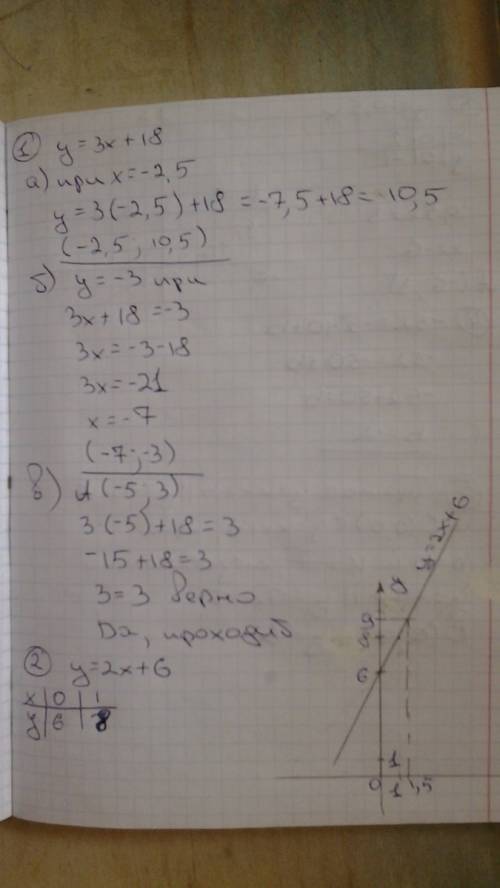 1 y = 3x + 18
а) при x = -2,5
y = 3(-2,5) + 18 = -7,5 + 18 = 10,5
(-2,5; 10,5)
б) y = -3 при
3x + 18 = -3
3x = -3 - 18
3x = -21
x = -7
(-7; -3)
в) A(-5; 3)
3(-5) + 18 = 3
-15 + 18 = 3
3 = 3 верно
Да, проходит
2 y = 2x + 6
x 0 1
y 6 8
y = 2x + 6
y
9
8
6
1
0 1 1,5